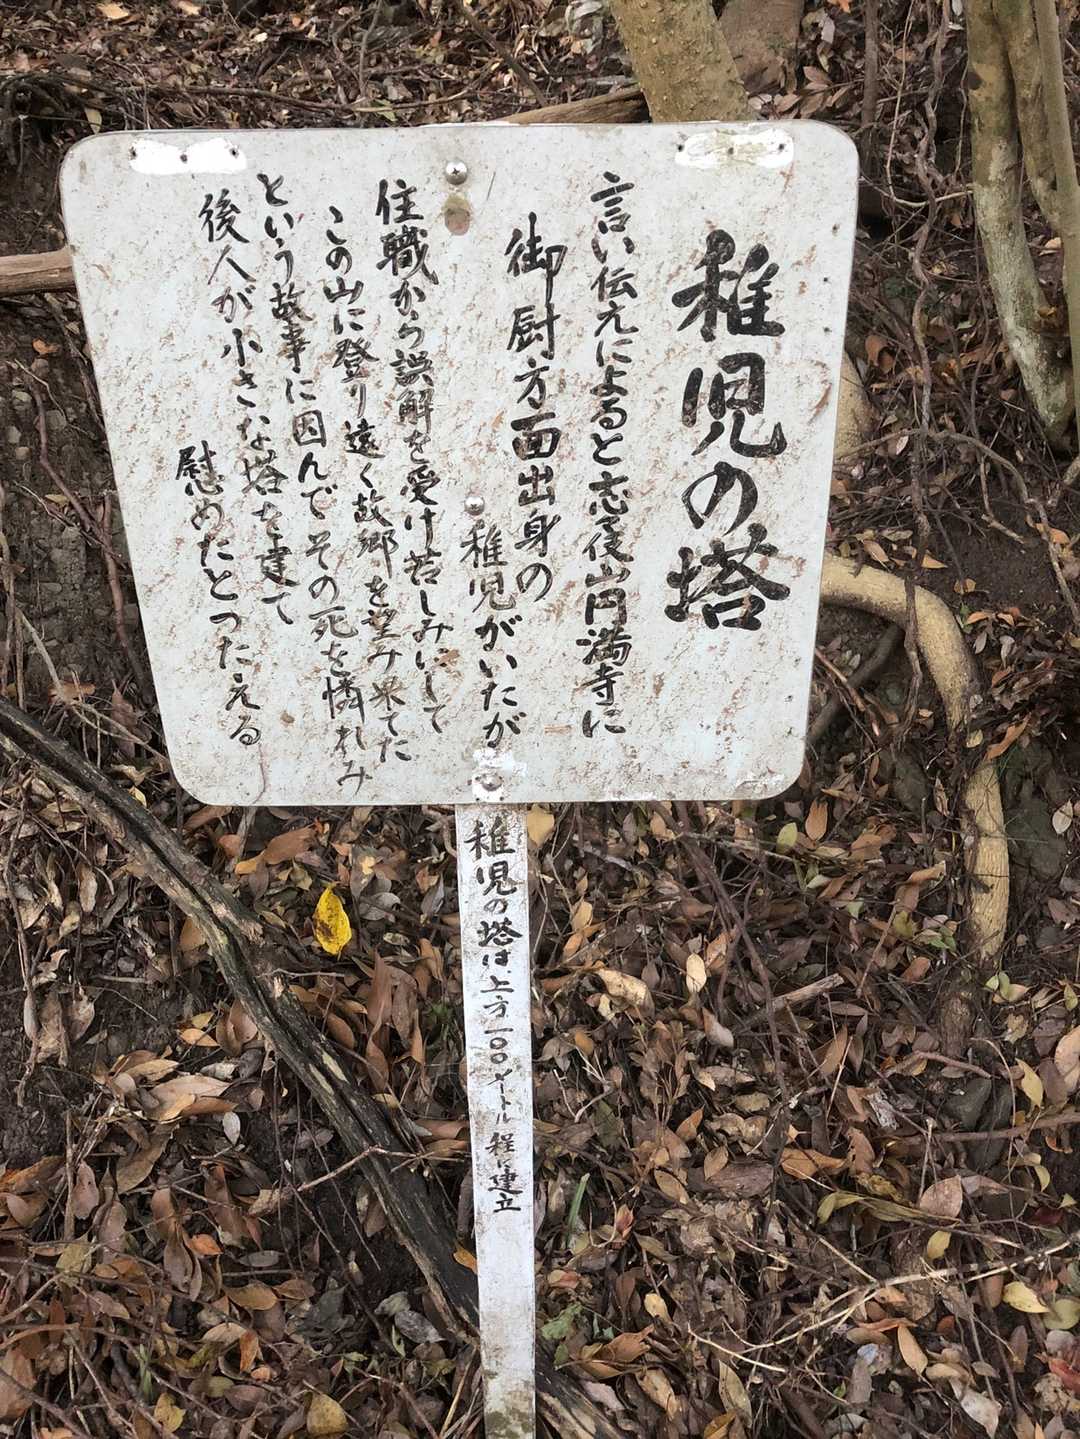 稚児の塔
言い伝えによると忘後山円満寺に
御厨方面出身の
稚児がいたが
住職から誤解を受け苦しみにして
この山に登り遠く故郷を望み果てた
という故事に因んでその死を憐れみ
後人が小さな塔を建て
慰めたとつたえる
稚児の塔は、上方一〇〇メートル程に建立